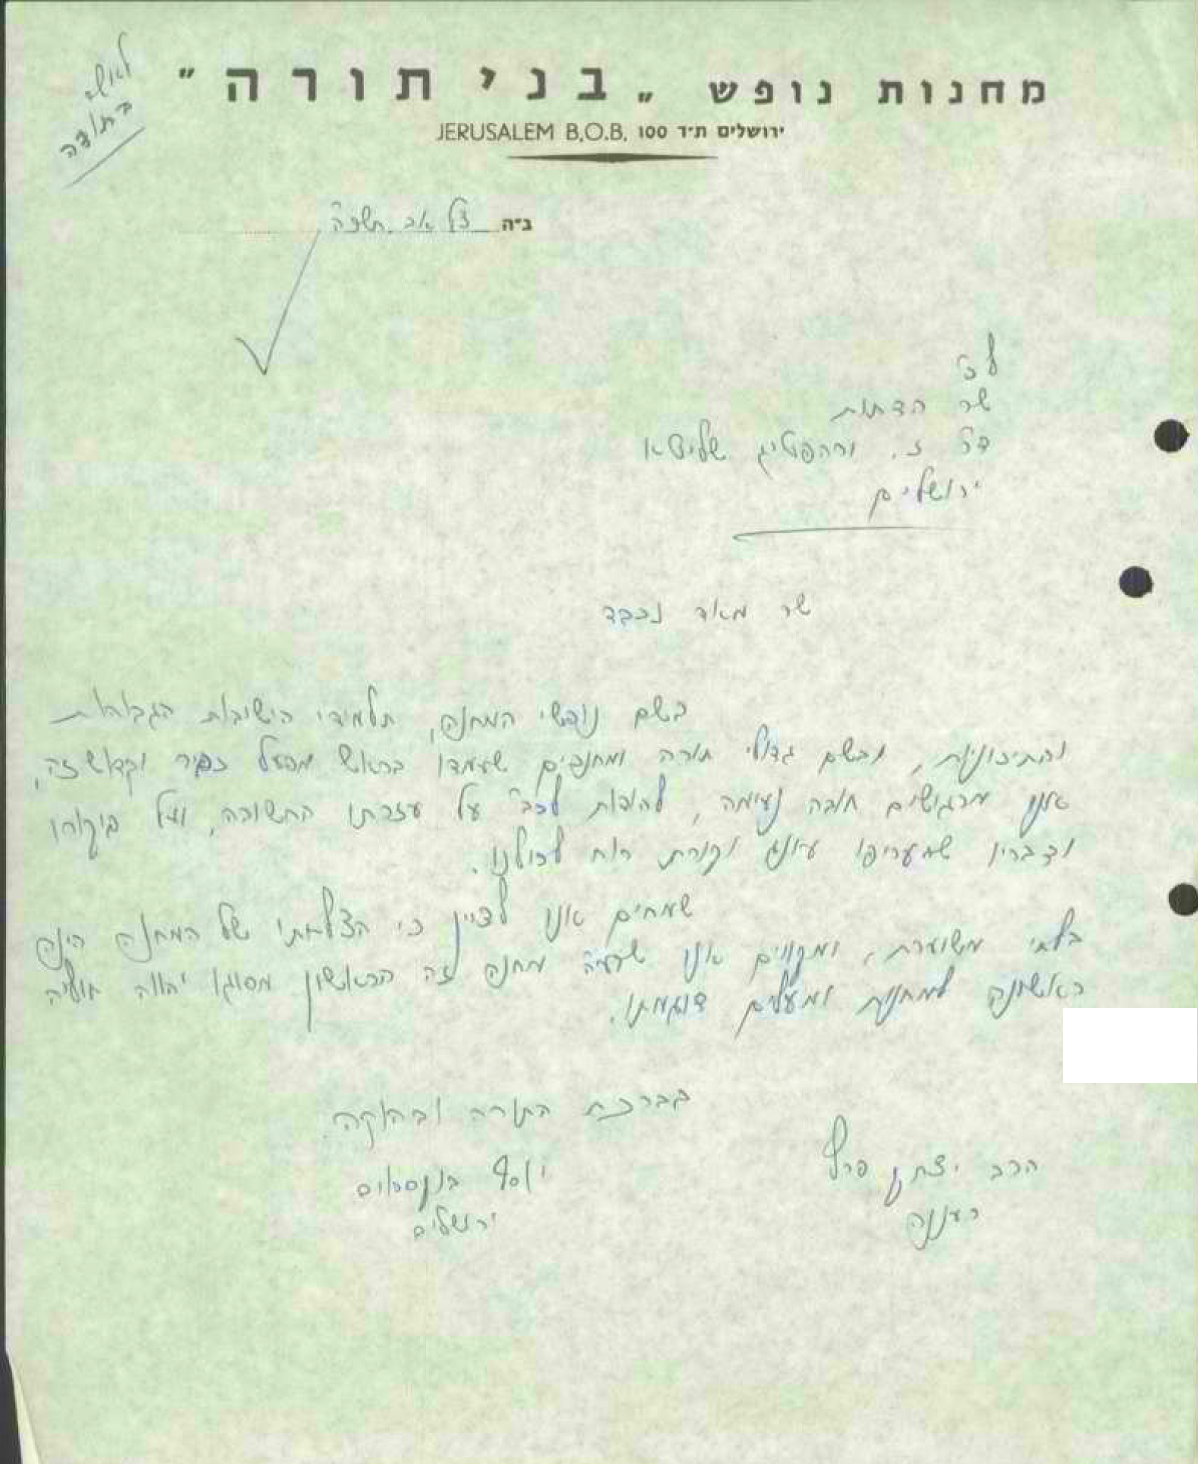 לאשר
בתודה
מחנות נופש „בני תורה"
ירושלים ת״ד 100 JERUSALEM B.O.B.
ב״ה אב תשכ״ה
לכ'
שר הדתות
ד״ר ז. ורהפטיג שליט״א
ירושלים
שר מאד נכבד
בשם נופשי המחנה, תלמידי הישיבות הגבוהות
והתיכוניות, ובשם גדולי תורה ומחנכים שעמדו בראש מפעל כביר וקדוש זה,
אנו מרגישים חובה נעימה, להודות לכב' על עזרתו החשובה, ועל ביקורו
ודבריו שהעריפו עונג וקורת רוח לכולנו.
שמחים אנו לציין כי הצלחתו של המחנה הינה
בלתי משוערת, ומקווים אנו מחנה זה הראשון מסוגו יהווה חוליה
ראשונה למחנות ומפעלים דוגמתו.
בברכת התורה ובהוקרה.
הרב יצחק פרל
רעננה
יוסף
ירושלים